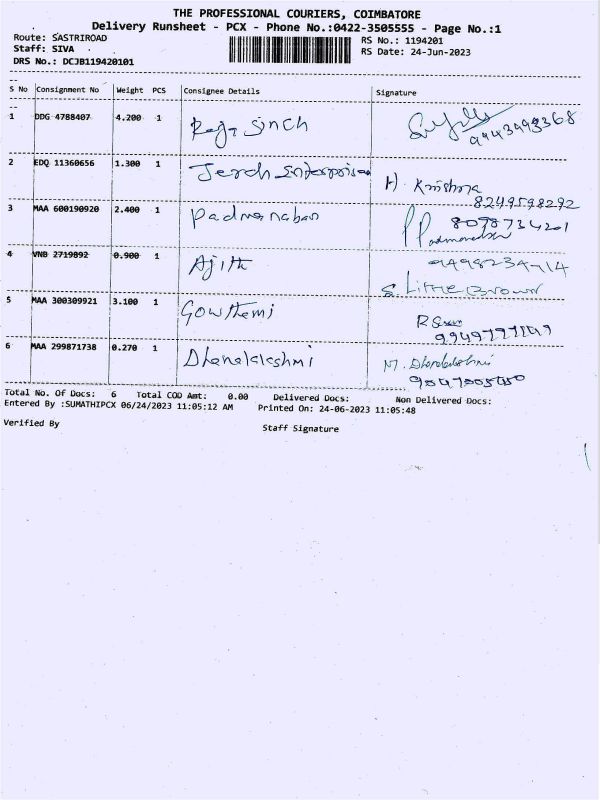 THE PROFESSIONAL COURIERS, COIMBATORE
Delivery Runsheet - PCX - Phone No.:0422-3505555 - Page No.:1
Route: SASTRIROAD
RS No.: 1194201
Staff: SIVA
RS Date: 24-Jun-2023
DRS No.: DCJB119420101
S No Consignment No Weight PCS Consignee Details Signature
1 DDG 4788407 4.200 1 Raja Singh
9943493368
2 EDQ 11360656 1.300 1 Enterprises H. Krishna
8249598292
3 MAA 600190920 2.400 1 Padmanaban
8098734201
4 VNB 2719892 0.900 1 Ajith
S. Little Brown
5 MAA 300309921 3.100 1 Gowthami
6 MAA 299871738 0.270 1 Dhanalakshmi M. Dhanalakshmi
Total No. Of Docs: 6 Total COD Amt: 0.00 Delivered Docs: Non Delivered Docs:
Entered By :SUMATHIPCX 06/24/2023 11:05:12 AM Printed On: 24-06-2023 11:05:48
Verified By
Staff Signature